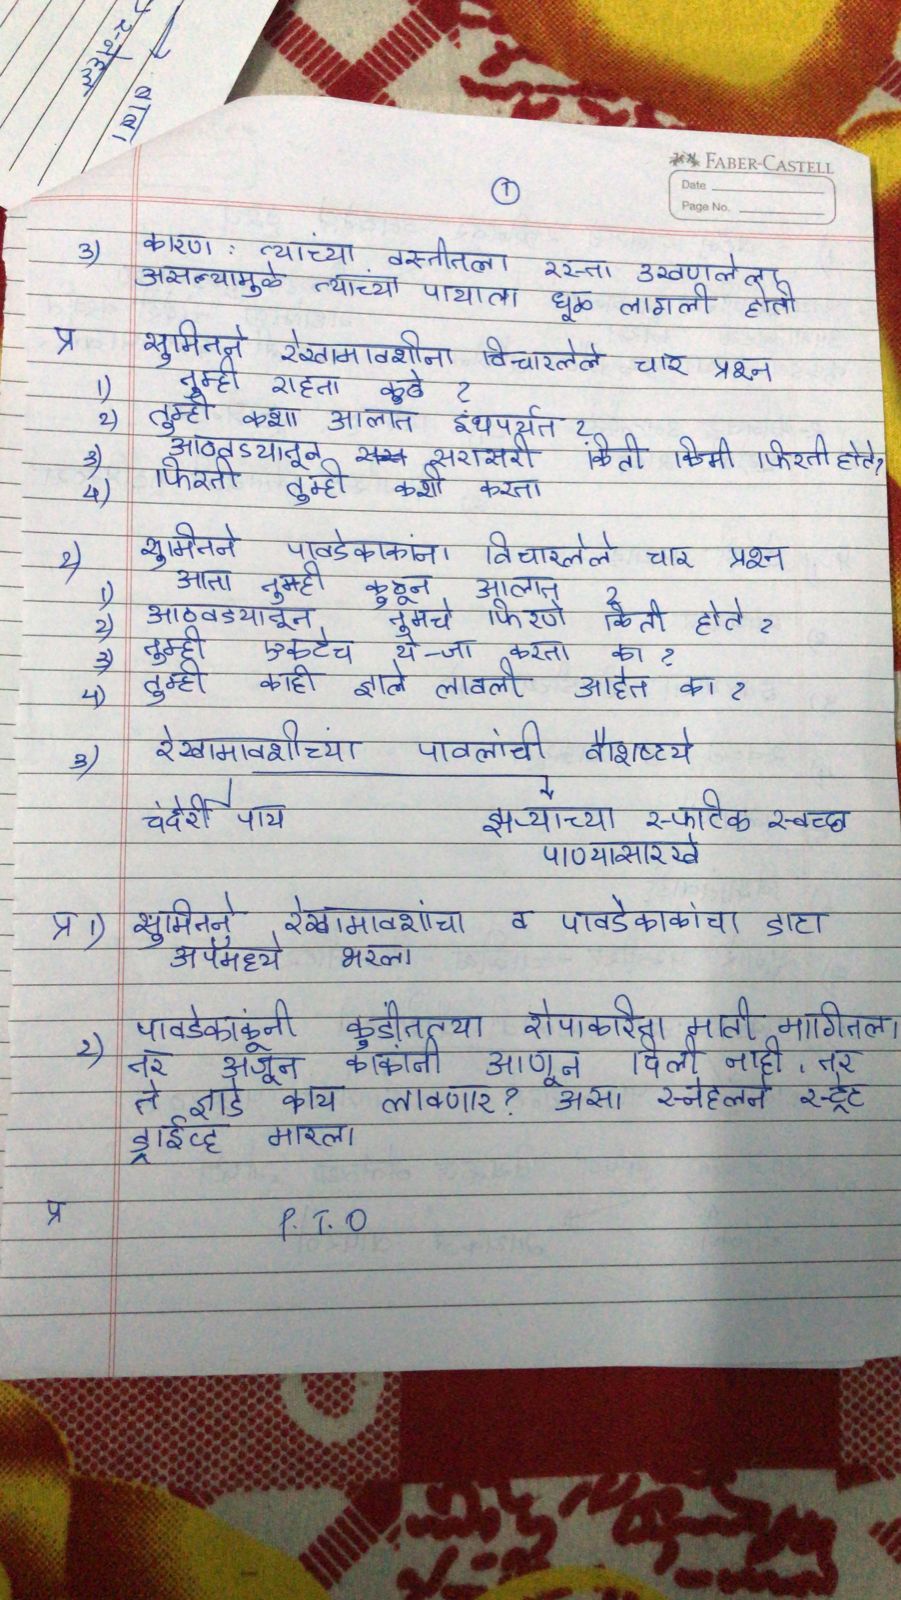 २-नेहल
बाबा
FABER-CASTELL
Date
Page No.
1
3) कारण : त्यांच्या वस्तीतला रस्ता उखणलेला
असल्यामुळे त्यांच्या पायाला धूळ लागली होती
प्र सुमितने रेखामावशींना विचारलेले चार प्रश्न
1) तुम्ही राहता कुठे ?
2) तुम्ही कशा आलात इथपर्यंत ?
3) आठवड्यातून सरासरी किती किमी फिरती होते?
4) फिरती तुम्ही कशी करता
2) सुमितने पावडेकाकांना विचारलेले चार प्रश्न
1) आता तुम्ही कुठून आलात ?
2) आठवड्यातून तुमचे फिरणे किती होते ?
3) तुम्ही एकटेच ये-जा करता का ?
4) तुम्ही काही झाले लावली आहेत का ?
3) रेखामावशींच्या पावलांची वैशिष्ट्ये
चंदेरी पाय झऱ्याच्या स्फटिक स्वच्छ
पाण्यासारखे
प्र 1) सुमितने रेखामावशींचा व पावडेकाकांचा डाटा
अ‍ॅपमध्ये भरला
2) पावडेकाकूंनी कुंडीतल्या रोपाकरिता माती मागितला
तर अजून काकांनी आणून दिली नाही. तर
ते झाडे काय लावणार? असा स्नेहलने स्ट्रेट
ड्राईव्ह मारला
प्र P.T.O